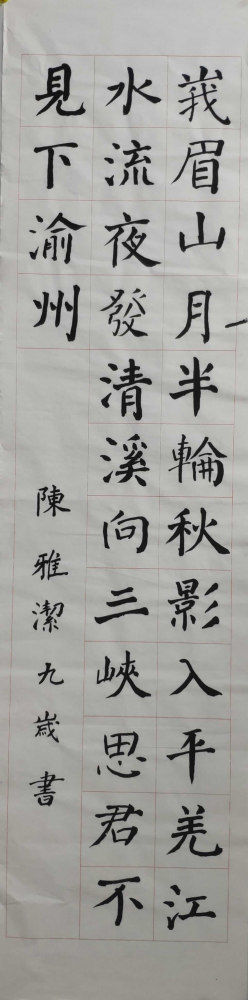 峩眉山月半輪秋影入平羌江
水流夜發清溪向三峽思君不
見下渝州
陳雅潔九歲書